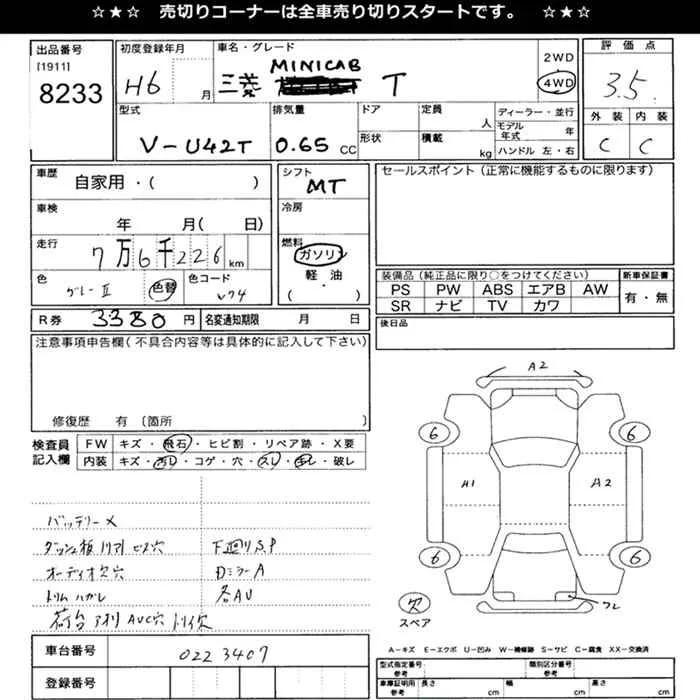 ☆★☆ 売切りコーナーは全車売り切りスタートです。 ☆★☆
出品番号
[1911]
8233
初度登録年月
H6 月
車名・グレード
三菱 MINICAB T
2WD
4WD
評価点
3.5
外装 内装
C C
型式
V-U42T
排気量
0.65 CC
ドア
形状
定員
人
積載
kg
ディーラー・並行
モデル年式 年
ハンドル 左・右
車歴
自家用・( )
車検
年 月( 日)
走行
7万6千226km
色
グレーⅡ
色替
色コード
V74
シフト
MT
冷房
燃料
ガソリン
軽油
( ・ )
セールスポイント(正常に機能するものに限ります)
装備品(純正品に限り○をつけてください)
PS PW ABS エアB AW
SR ナビ TV カワ
新車保証書
有・無
R券 3380円
名変通知期限 月 日
後日品
注意事項申告欄(不具合内容等は具体的に記入して下さい)
修復歴 有 〔箇所 〕
検査員
記入欄
FW キズ・飛石・ヒビ割・リペア跡・X要
内装 キズ・汚レ・コゲ・穴・スレ・キレ・破レ
バッテリー×
オーディオ欠穴
トリムハガレ
下廻りS.P
DミラーA
各AU
A2
6
6
A1
A2
6
6
欠
スペア
A-キズ E-エクボ U-凹み W-補修跡 S-サビ C-腐食 XX-交換済
車台番号
022 3407
登録番号
型式指定番号
参考
類別区分番号
参考
車庫証明用
参考
長さ cm
幅 cm
高さ cm